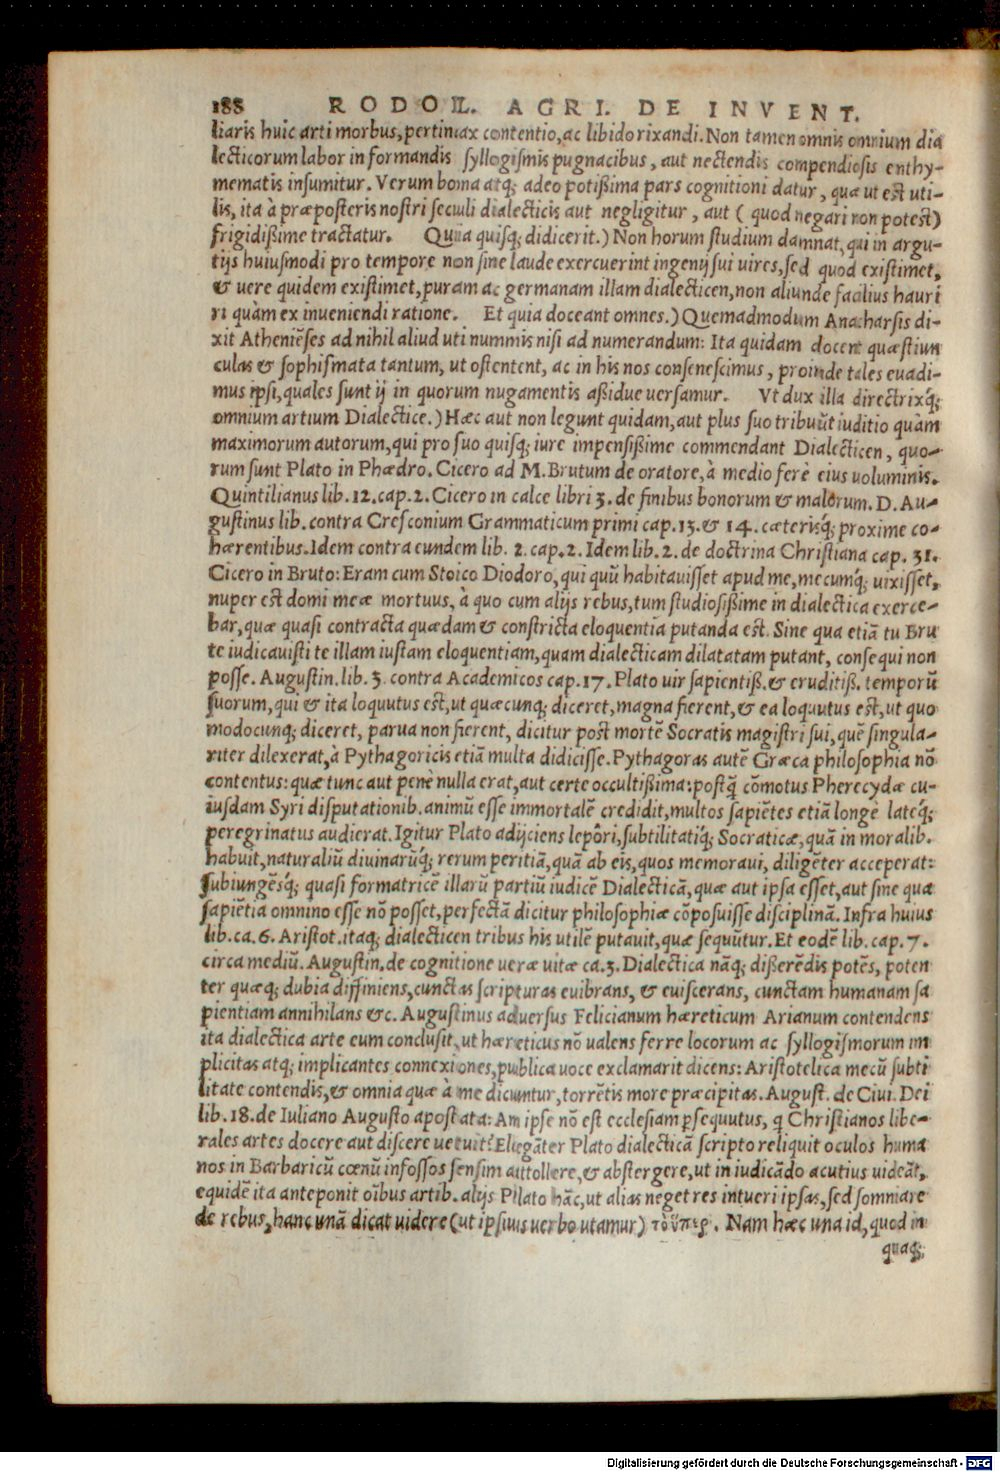 188 RODOL. AGRI. DE INVENT.
liaris huic arti morbus, pertinax contentio, ac libido rixandi. Non tamen omnis omnium dia
lecticorum labor in formandis syllogismis pugnacibus, aut nectendis compendiosis enthy-
mematis insumitur. Verum bona atq; adeo potißima pars cognitioni datur, quæ ut est uti-
lis, ita à præposteris nostri seculi dialecticis aut negligitur, aut ( quod negari non potest)
frigidißime tractatur. Qua quisq; didicerit.) Non horum studium damnat, qui in argu-
tijs huiusmodi pro tempore non sine laude exercuerint ingenij sui uires, sed quod existimet,
& uere quidem existimet, puram ac germanam illam dialecticen, non aliunde facilius hauri
ri quàm ex inueniendi ratione. Et quia doceant omnes.) Quemadmodum Anacharsis di-
xit Atheniẽses ad nihil aliud uti nummis nisi ad numerandum: Ita quidam docent quæstiun
culas & sophismata tantum, ut ostentent, ac in his nos consenescimus, proinde tales euadi-
mus ipsi, quales sunt ij in quorum nugamentis aßidue uersamur. Vt dux illa directrixq́;
omnium artium Dialectice.) Hæc aut non legunt quidam, aut plus suo tribuũt iuditio quàm
maximorum autorum, qui pro suo quisq; iure impensißime commendant Dialecticen, quo-
rum sunt Plato in Phædro. Cicero ad M. Brutum de oratore, à medio ferè eius uoluminis.
Quintilianus lib. 12. cap. 2. Cicero in calce libri 3. de finibus bonorum & malorum. D. Au-
gustinus lib. contra Cresconium Grammaticum primi cap. 13. & 14. cæterisq́; proxime co-
hærentibus. Idem contra eundem lib. 2. cap. 2. Idem lib. 2. de doctrina Christiana cap. 31.
Cicero in Bruto: Eram cum Stoico Diodoro, qui quũ habitauisset apud me, mecumq́; uixisset,
nuper est domi meæ mortuus, à quo cum alijs rebus, tum studiosißime in dialectica exerce-
bar, quæ quasi contracta quædam & constricta eloquentia putanda est. Sine qua etiã tu Bru
te iudicauisti te illam iustam eloquentiam, quam dialecticam dilatatam putant, consequi non
posse. Augustin. lib. 3. contra Academicos cap. 17. Plato uir sapientiß. & eruditiß. temporũ
suorum, qui & ita loquutus est, ut quæcunq; diceret, magna fierent, & ea loquutus est, ut quo
modocunq; diceret, parua non fierent, dicitur post mortẽ Socratis magistri sui, quẽ singula-
riter dilexerat, à Pythagoricis etiã multa didicisse. Pythagoras autẽ Græca philosophia nõ
contentus: quæ tunc aut penè nulla erat, aut certe occultißima: postq̃ cõmotus Pherecydæ cu-
iusdam Syri disputationib. animũ esse immortalẽ credidit, multos sapiẽtes etiã longè lateq́;
peregrinatus audierat. Igitur Plato adijciens lepôri, subtilitatiq́; Socraticæ, quã in moralib.
habuit, naturaliũ diuinarũq́; rerum peritiã, quã ab eis, quos memoraui, diligẽter acceperat:
subiungẽsq́; quasi formatricẽ illarũ partiũ iudicẽ Dialecticã, quæ aut ipsa esset, aut sine qua
sapiẽtia omnino esse nõ posset, perfectã dicitur philosophiæ cõposuisse disciplinã. Infra huius
lib. ca. 6. Aristot. itaq; dialecticen tribus his utilẽ putauit, quæ sequũtur. Et eodẽ lib. cap. 7.
circa mediũ. Augustin. de cognitione ueræ uitæ ca. 3. Dialectica nãq; dißerẽdis potẽs, poten
ter quæq; dubia diffiniens, cunctas scripturas euibrans, & euiscerans, cunctam humanam sa
pientiam annihilans &c. Augustinus aduersus Felicianum hæreticum Arianum contendens
ita dialectica arte eum conclusit, ut hæreticus nõ ualens ferre locorum ac syllogismorum im
plicitas atq; implicantes connexiones, publica uoce exclamarit dicens: Aristotelica mecũ subti
litate contendis, & omnia quæ à me dicuntur, torrẽtis more præcipitas. August. de Ciui. Dei
lib. 18. de Iuliano Augusto apostata: An ipse nõ est ecclesiam ꝑsequutus, q Christianos libe-
rales artes docere aut discere uetuit? Elegãter Plato dialecticã scripto reliquit oculos huma
nos in Barbaricũ cœnũ infossos sensim attollere, & abstergere, ut in iudicãdo acutius uideãt,
equidẽ ita anteponit oĩbus artib. alijs Plato hãc, ut alias neget res intueri ipsas, sed somniare
de rebus, hanc unã dicat uidere (ut ipsius uerbo utamur) τὸ ὕπαρ. Nam hæc una id, quod in
quaq;
Digitalisierung gefördert durch die Deutsche Forschungsgemeinschaft - DFG